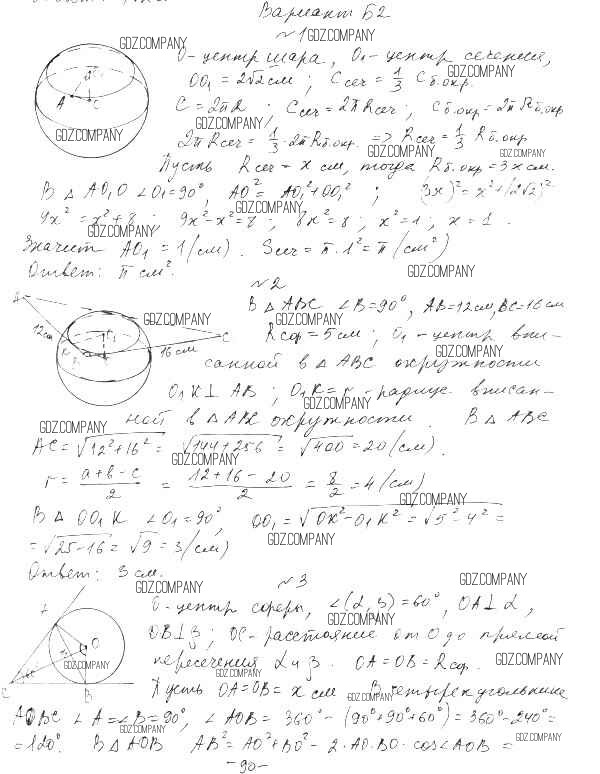 Вариант Б2
№1
О-центр шара, О₁-центр сечения,
ОО₁ = 2√2 см ; Cсеч = 1/3 Cб.окр.
C = 2πR ; Cсеч = 2πRсеч ; Cб.окр. = 2πRб.окр
2πRсеч = 1/3 · 2πRб.окр. => Rсеч = 1/3 Rб.окр
Пусть Rсеч - x см, тогда Rб.окр = 3x см.
В △ AO₁O ∠O₁ = 90°, AO² = AO₁² + OO₁² ; (3x)² = x² + (2√2)²
9x² = x² + 8 ; 9x² - x² = 8 ; 8x² = 8 ; x² = 1 ; x = 1.
Значит AO₁ = 1 (см). Sсеч = π · 1² = π (см²)
Ответ: π см².
№2
В △ ABC ∠B = 90°, AB = 12 см, BC = 16 см
Rсф = 5 см ; O₁ - центр впи-
санной в △ ABC окружности
O₁K ⊥ AB ; O₁K = r - радиус вписан-
ной в △ ABC окружности. В △ ABC
AC = √12² + 16² = √144 + 256 = √400 = 20 (см).
r = a + b - c / 2 = 12 + 16 - 20 / 2 = 8/2 = 4 (см)
В △ OO₁K ∠O₁ = 90°, OO₁ = √OK² - O₁K² = √5² - 4² =
= √25 - 16 = √9 = 3 (см)
Ответ: 3 см.
№3
О-центр сферы, ∠(α, β) = 60°, OA ⊥ α,
OB ⊥ β ; OC - расстояние от O до прямой
пересечения α и β. OA = OB = Rсф.
Пусть OA = OB = x см В четырехугольнике
AOBC ∠A = ∠B = 90°, ∠AOB = 360° - (90° + 90° + 60°) = 360° - 240° =
= 120°. В △ AOB AB² = AO² + BO² - 2 · AO · BO · cos∠AOB =
-90-
A
C
12см
16 см
A
O
C
B
GDZ.COMPANY